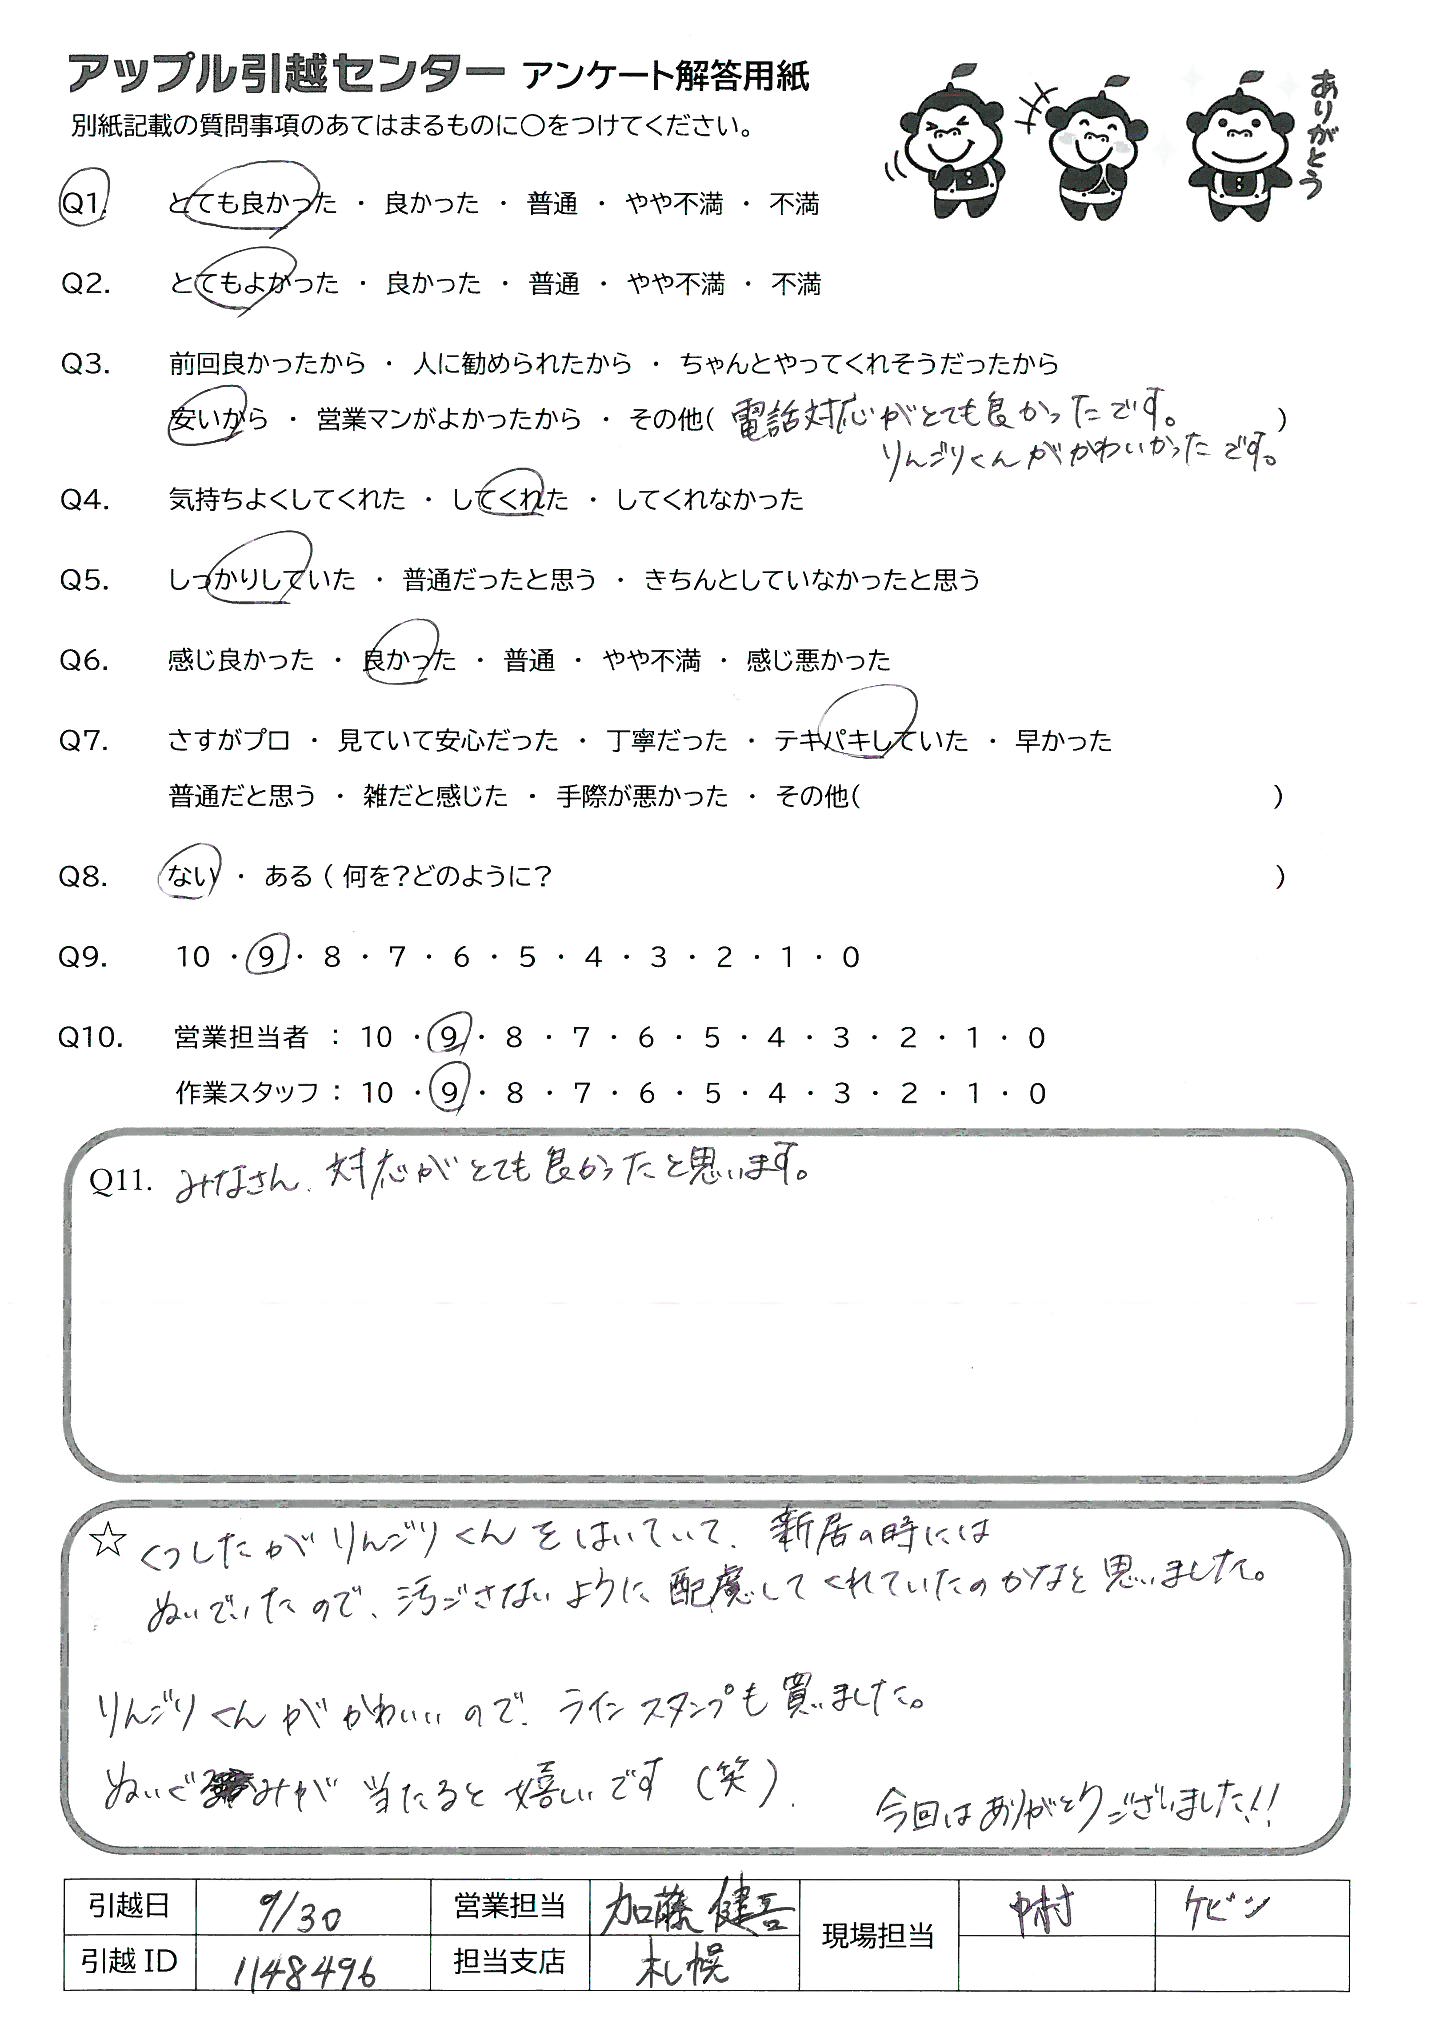 アップル引越センター アンケート解答用紙
別紙記載の質問事項のあてはまるものに〇をつけてください。
ありがとう
Q1. とても良かった ・ 良かった ・ 普通 ・ やや不満 ・ 不満
Q2. とてもよかった ・ 良かった ・ 普通 ・ やや不満 ・ 不満
Q3. 前回良かったから ・ 人に勧められたから ・ ちゃんとやってくれそうだったから
安いから ・ 営業マンがよかったから ・ その他( 電話対応がとても良かったです。 )
りんごりくんがかわいかったです。
Q4. 気持ちよくしてくれた ・ してくれた ・ してくれなかった
Q5. しっかりしていた ・ 普通だったと思う ・ きちんとしていなかったと思う
Q6. 感じ良かった ・ 良かった ・ 普通 ・ やや不満 ・ 感じ悪かった
Q7. さすがプロ ・ 見ていて安心だった ・ 丁寧だった ・ テキパキしていた ・ 早かった
普通だと思う ・ 雑だと感じた ・ 手際が悪かった ・ その他( )
Q8. ない ・ ある ( 何を?どのように? )
Q9. 10 ・ 9 ・ 8 ・ 7 ・ 6 ・ 5 ・ 4 ・ 3 ・ 2 ・ 1 ・ 0
Q10. 営業担当者 : 10 ・ 9 ・ 8 ・ 7 ・ 6 ・ 5 ・ 4 ・ 3 ・ 2 ・ 1 ・ 0
作業スタッフ : 10 ・ 9 ・ 8 ・ 7 ・ 6 ・ 5 ・ 4 ・ 3 ・ 2 ・ 1 ・ 0
Q11. みなさん、対応がとても良かったと思います。
☆ くつしたがりんごりくんをはいていて、新居の時には
ぬいでいたので、汚ごさないように配慮してくれていたのかなと思いました。
りんごりくんがかわいいので、ラインスタンプも買いました。
ぬいぐるみが当たると嬉しいです(笑).
今回はありがとうございました!!
引越日 9/30 営業担当 加藤 健吾 現場担当 中村 ケビン
引越ID 1148496 担当支店 札幌